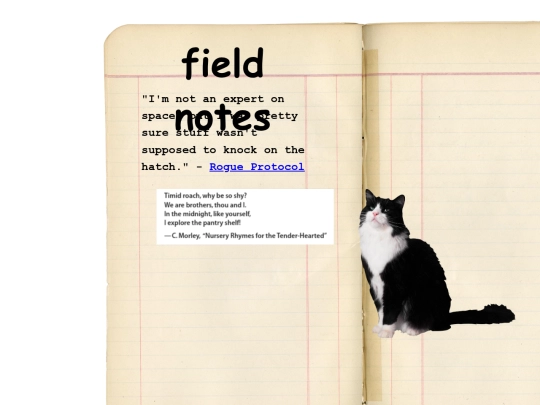 field
notes
"I'm not an expert on
space
pretty
sure stuff wasn't
supposed to knock on the
hatch." - Rogue Protocol
Timid roach, why be so shy?
We are brothers, thou and I.
In the midnight, like yourself,
I explore the pantry shelf!
—C. Morley, "Nursery Rhymes for the Tender-Hearted"